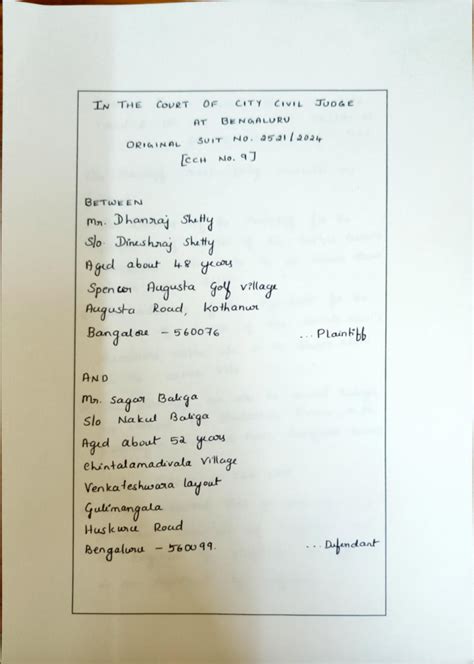 IN THE COURT OF CITY CIVIL JUDGE
AT BENGALURU
ORIGINAL SUIT NO. 2521/2024
[CCH NO. 9]
BETWEEN
Mr. Dhanraj Shetty
S/o Dineshraj Shetty
Aged about 48 years
Spencer Augusta Golf Village
Augusta Road, Kothanur
Bangalore - 560076 ... Plaintiff
AND
Mr. Sagar Baliga
S/o Nakul Baliga
Aged about 52 years
Chintalamadivala Village
Venkateshwara layout
Gulimangala
Huskuru Road
Bengaluru - 560099. ... Defendant